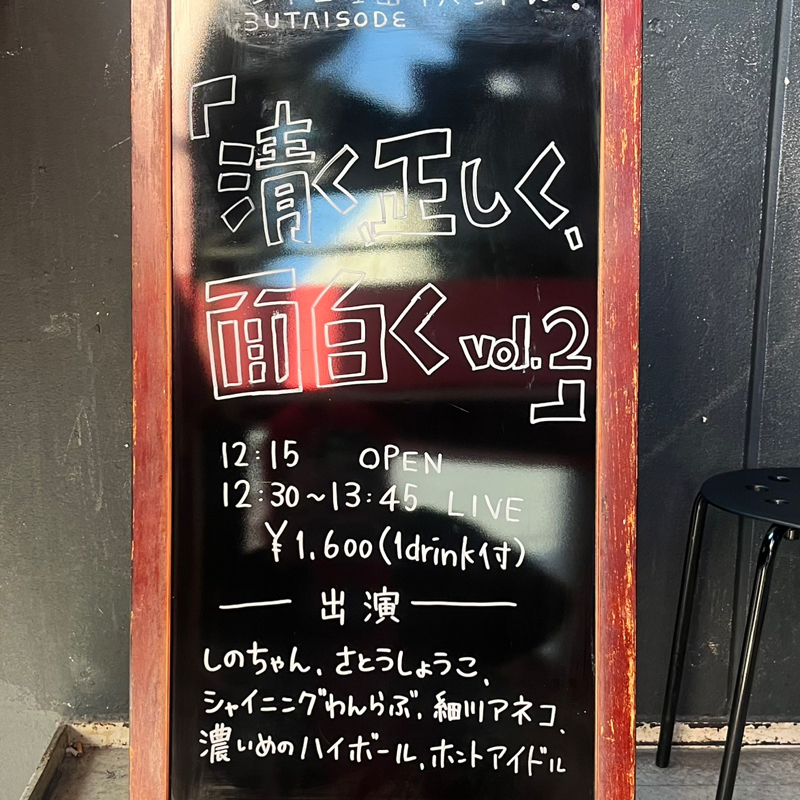 BUTAISODE
「清く、正しく、
面白く vol.2」
12:15 OPEN
12:30~13:45 LIVE
¥1.600(1drink付)
出演
しのちゃん、さとうしょうこ、
シャイニングわんらぶ、細川アネコ、
濃いめのハイボール、ホントアイドル